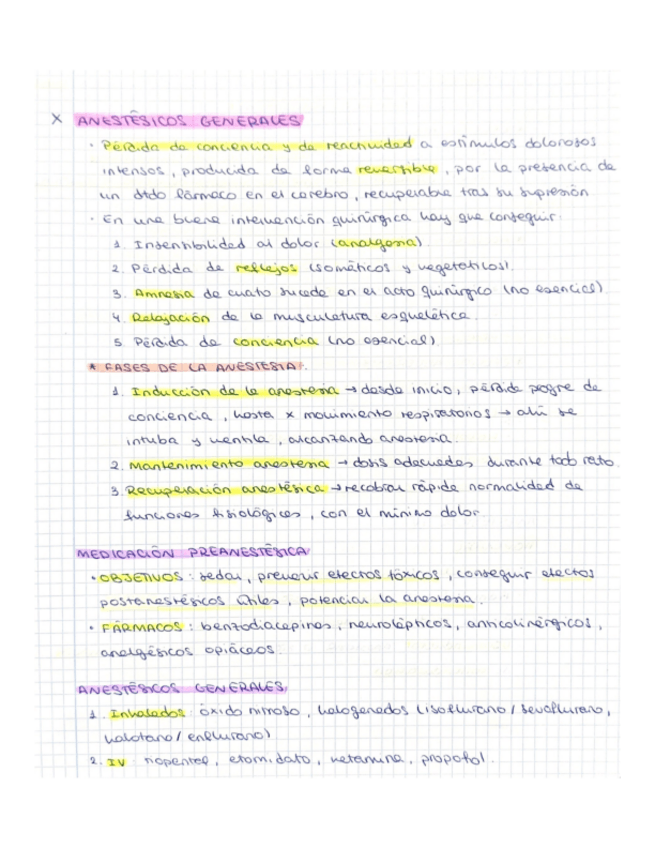 X ANESTÉSICOS GENERALES
· Pérdida de conciencia y de reactividad a estímulos dolorosos
intensos, producida de forma reversible, por la presencia de
un dtdo fármaco en el cerebro, recuperable tras su supresión
· En una buena intervención quirúrgica hay que conseguir:
1. Insensibilidad al dolor (analgesia)
2. Pérdida de reflejos (somáticos y vegetativos).
3. Amnesia de cuanto sucede en el acto quirúrgico (no esencial)
4. Relajación de la musculatura esquelética.
5. Pérdida de conciencia (no esencial)
* FASES DE LA ANESTESIA:
1. Inducción de la anestesia → desde inicio, pérdida progre de
conciencia, hasta x movimiento respiratorios → ahí se
intuba y ventila, alcanzando anestesia.
2. Mantenimiento anestesia → dosis adecuadas durante todo rato.
3. Recuperación anestésica → recobrar rápida normalidad de
funciones fisiológicas, con el mínimo dolor.
MEDICACIÓN PREANESTÉSICA
· OBJETIVOS: sedar, prevenir efectos tóxicos, conseguir efectos
postanestésicos útiles, potenciar la anestesia.
· FÁRMACOS: benzodiacepinas, neurolépticos, anticolinérgicos,
analgésicos opiáceos.
ANESTÉSICOS GENERALES
1. Inhalados: óxido nitroso, halogenados (isoflurano / sevoflurano,
halotano / enflurano)
2. IV: tiopental, etomidato, ketamina, propofol.